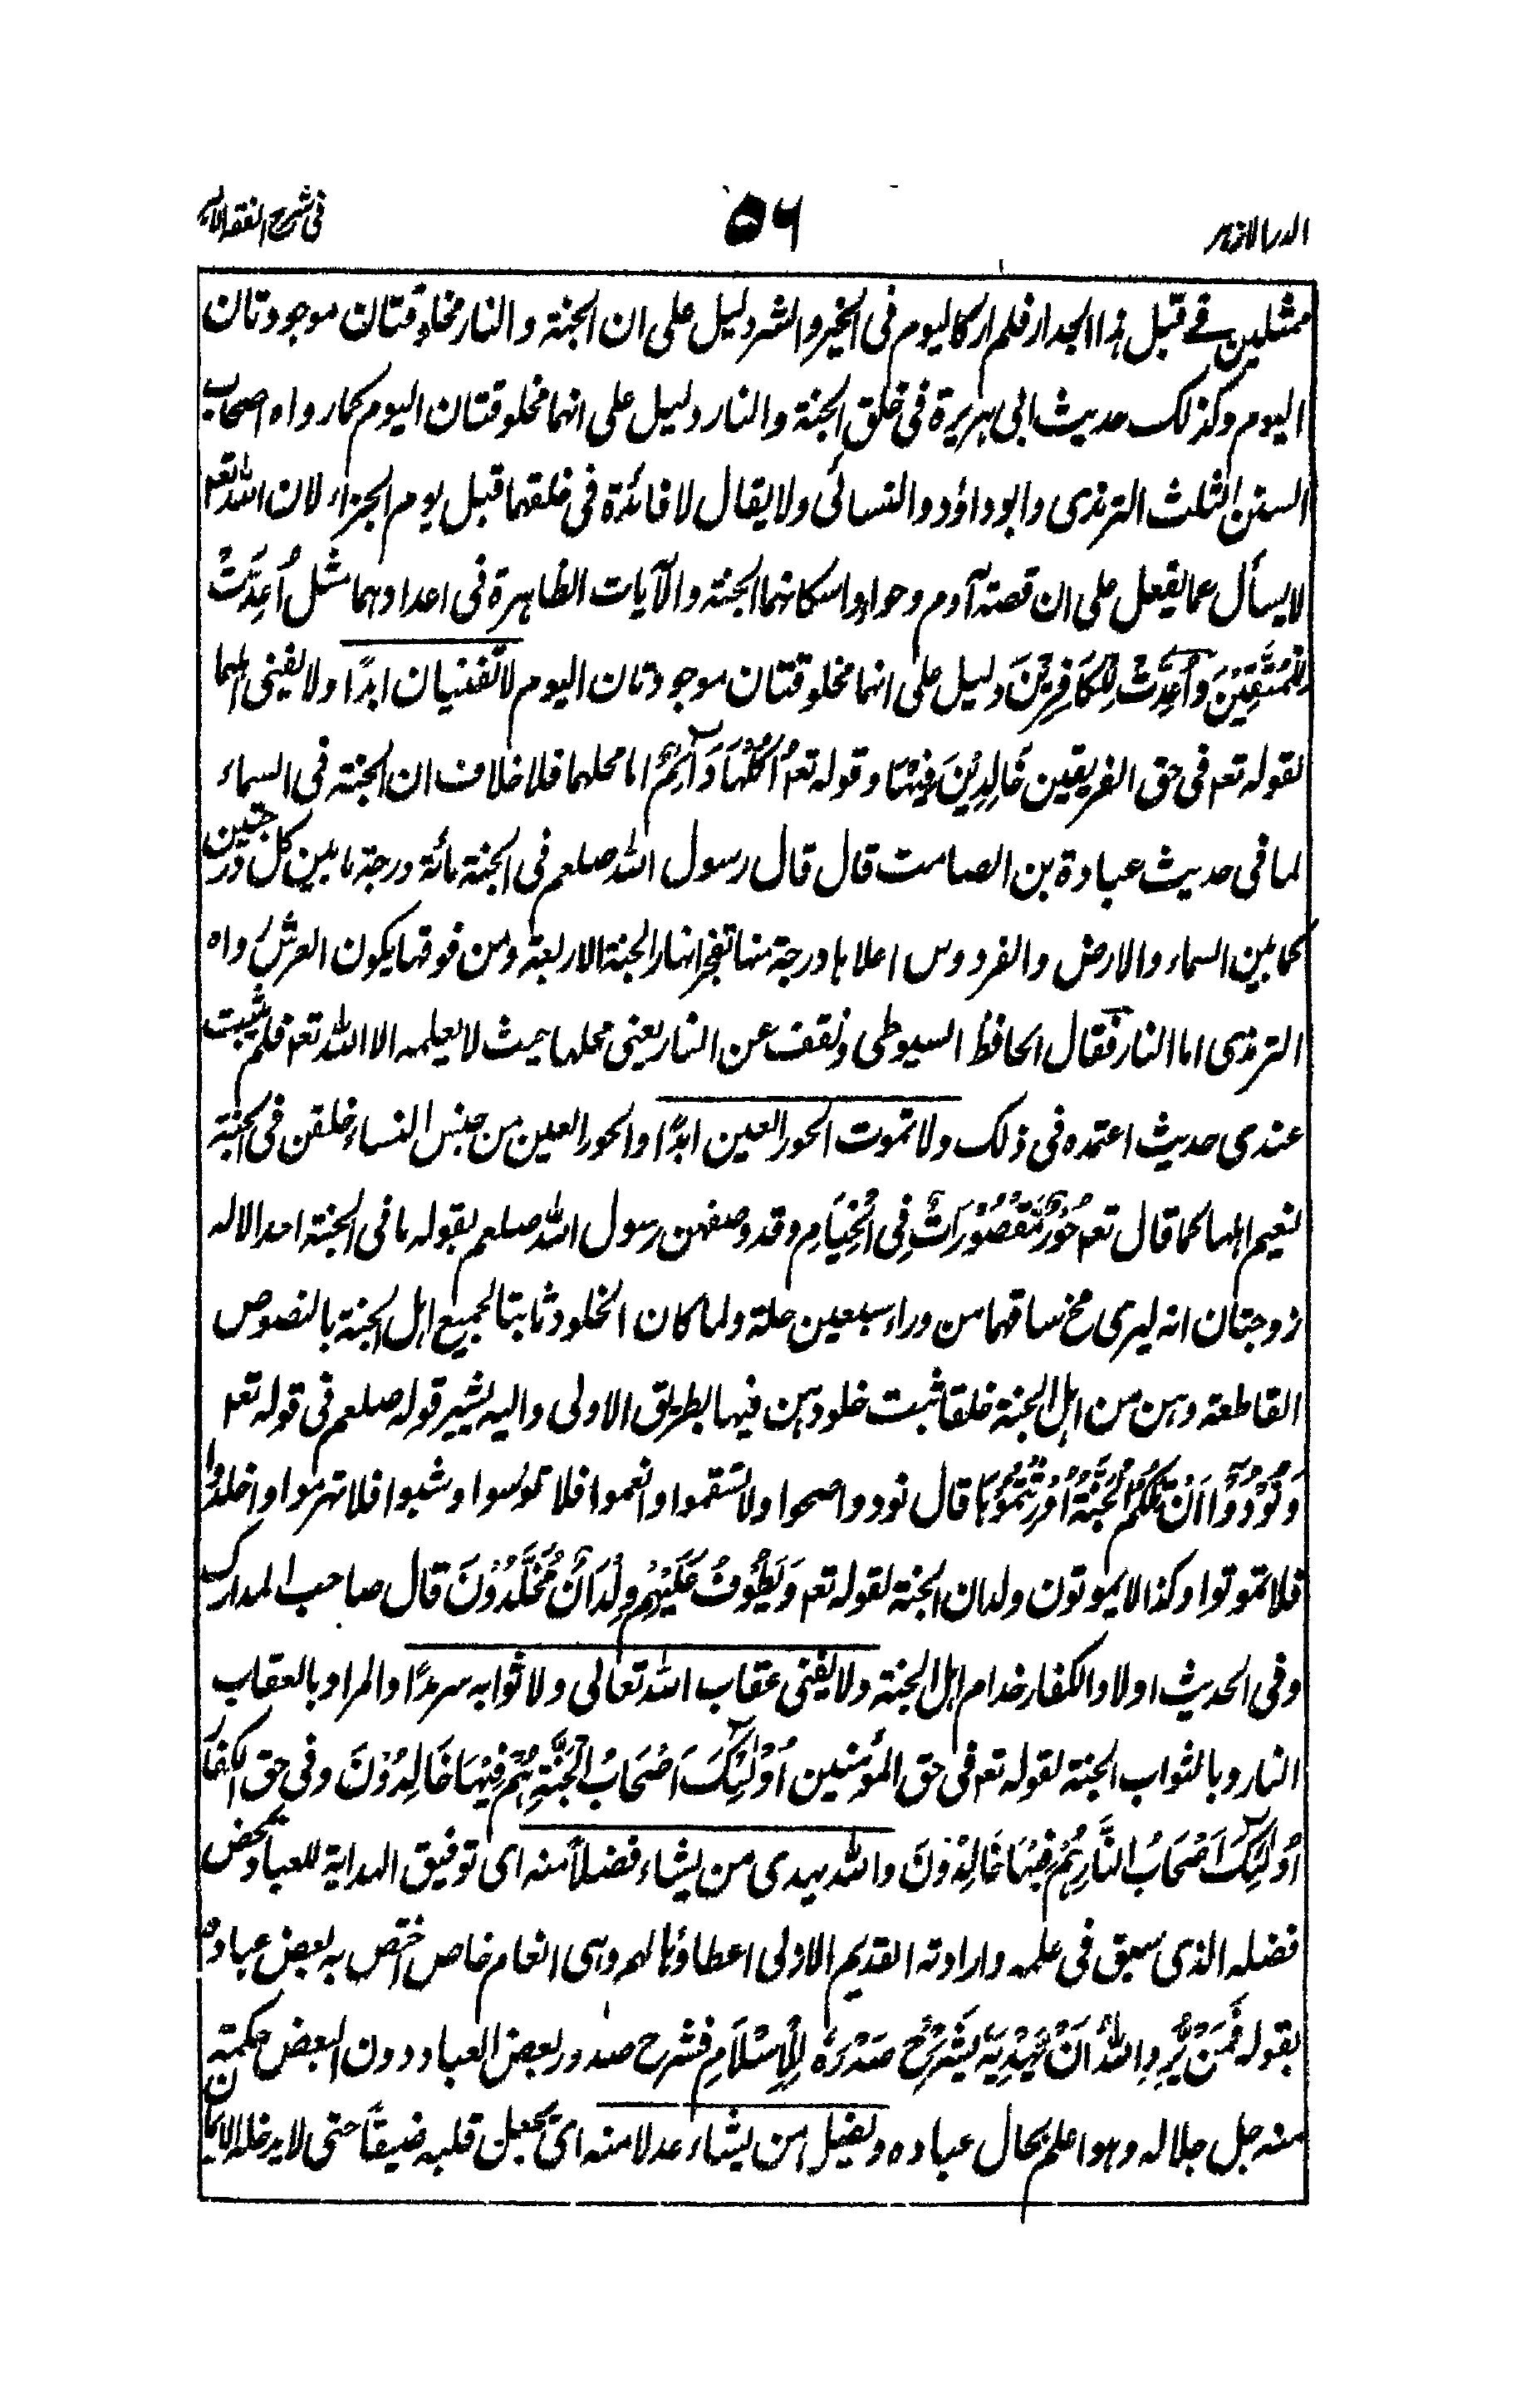 الدر الازهر ٥٦ فى شرح الفقه الاكبر
ممثلين فے قبل هذا الجدار فلم ار كاليوم فى الخير والشر دليل على ان الجنة والنار مخلوقتان موجودتان
اليوم وكذلك حديث ابى هريرة فى خلق الجنة والنار دليل على انهما مخلوقتان اليوم كما رواه اصحاب
السنن الثلث الترمذى وابو داؤد والنسائى ولا يقال لا فائدة فى خلقهما قبل يوم الجزاء لان الله تعم
لا يسأل عما يفعل على ان قصة آدم وحواء واسكانهما الجنة والآيات الظاهرة فى اعدادهما مثل اُعِدَّتْ
لِلْمُتَّقِيْنَ وَاُعِدَّتْ لِلْكَافِرِيْنَ دليل على انهما مخلوقتان موجودتان اليوم لا تفنيان ابدًا ولا يفنى اهلهما
لقوله تعم فى حق الفريقين خَالِدِيْنَ فِيْهَا وقوله تعم اُكُلُهَا دَآئِمٌ اما محلهما فلا خلاف ان الجنة فى السماء
لما فى حديث عبادة بن الصامت قال قال رسول الله صلعم فى الجنة مائة درجة ما بين كل درجتين
كما بين السماء والارض والفردوس اعلاها درجة منها تفجر انهار الجنة الاربعة ومن فوقها يكون العرش رواه
الترمذى اما النار فقال الحافظ السيوطى ونقف عن النار يعنى محلها حيث لا يعلمه الا الله تعم فلم يثبت
عندى حديث اعتمده فى ذلك ولا تموت الحور العين ابدًا والحور العين من جنس النساء خلقن فى الجنة
لنعيم اهلها كما قال تعم حُوْرٌ مَّقْصُوْرَاتٌ فِى الْخِيَامِ وقد وصفهن رسول الله صلعم بقوله ما فى الجنة احد الا له
زوجتان انه ليرى مخ ساقهما من وراء سبعين حلة ولما كان الخلود ثابتا لجميع اهل الجنة بالنصوص
القاطعة وهن من اهل الجنة خلقا ثبت خلودهن فيها بطريق الاولى واليه يشير قوله صلعم فى قوله تعم
وَنُوْدُوْٓا اَنْ تِلْكُمُ الْجَنَّةُ اُوْرِثْتُمُوْهَا قال نودوا صحوا ولا تسقموا وانعموا فلا تبؤسوا وشبوا فلا تهرموا واخلدوا
فلا تموتوا وكذا لا يموتون ولدان الجنة لقوله تعم وَيَطُوْفُ عَلَيْهِمْ وِلْدَانٌ مُّخَلَّدُوْنَ قال صاحب المدارك
وفى الحديث اولاد الكفار خدام اهل الجنة ولا يفنى عقاب الله تعالى ولا ثوابه سرمدًا والمراد بالعقاب
النار وبالثواب الجنة لقوله تعم فى حق المؤمنين اُوْلٰٓئِكَ اَصْحَابُ الْجَنَّةِ هُمْ فِيْهَا خَالِدُوْنَ وفى حق الكفار
اُوْلٰٓئِكَ اَصْحَابُ النَّارِ هُمْ فِيْهَا خَالِدُوْنَ والله يهدى من يشاء فضلاً منه اى توفيق الهداية للعباد محض
فضله الذى سبق فى علمه وارادته القديم الازلى اعطاؤها لهم وهى انعام خاص اختص به بعض عباده
بقوله فَمَنْ يُّرِدِ اللّٰهُ اَنْ يَّهْدِيَهٗ يَشْرَحْ صَدْرَهٗ لِلْاِسْلَامِ فشرح صدور بعض العباد دون البعض حكمة
منه جل جلاله وهو اعلم بحال عباده ويضل من يشاء عدلا منه اى يجعل قلبه ضيقًا حتى لا يدخله الايمان